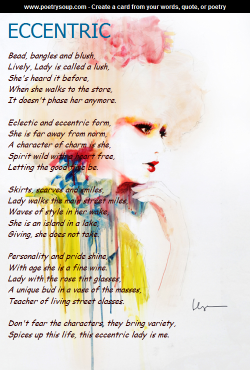 www.poetrysoup.com - Create a card from your words, quote, or poetry
ECCENTRIC
Bead, bangles and blush,
Lively, Lady is called a lush,
She's heard it before,
When she walks to the store,
It doesn't phase her anymore.
Eclectic and eccentric form,
She is far away from norm,
A character of charm is she,
Spirit wild with a heart free,
Letting the good be.
Skirts, scarves and smiles,
Lady walks the main street miles,
Waves of style in her wake,
She is an island in a lake;
Giving, she does not take.
Personality and pride shine,
With age she is a fine wine.
Lady with the rose tint glasses,
A unique bud in a vase of the masses,
Teacher of living street classes.
Don't fear the characters, they bring variety,
Spices up this life, this eccentric lady is me.